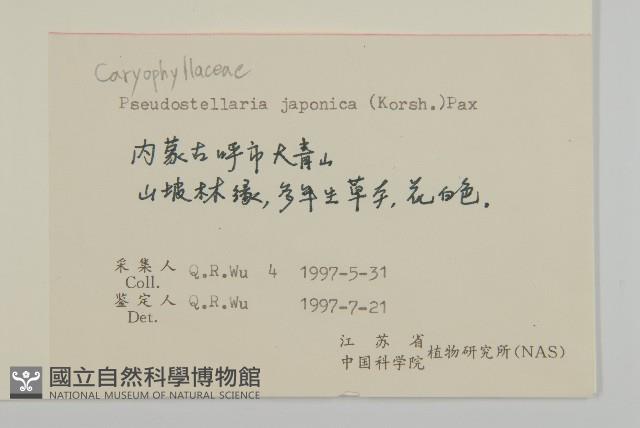 Caryophyllaceae
Pseudostellaria japonica (Korsh.)Pax
内蒙古呼市大青山
山坡林缘，多年生草本，花白色。
采集人 Q.R.Wu 4 1997-5-31
Coll.
鉴定人 Q.R.Wu 1997-7-21
Det.
江苏省
中国科学院 植物研究所(NAS)
國立自然科學博物館
NATIONAL MUSEUM OF NATURAL SCIENCE